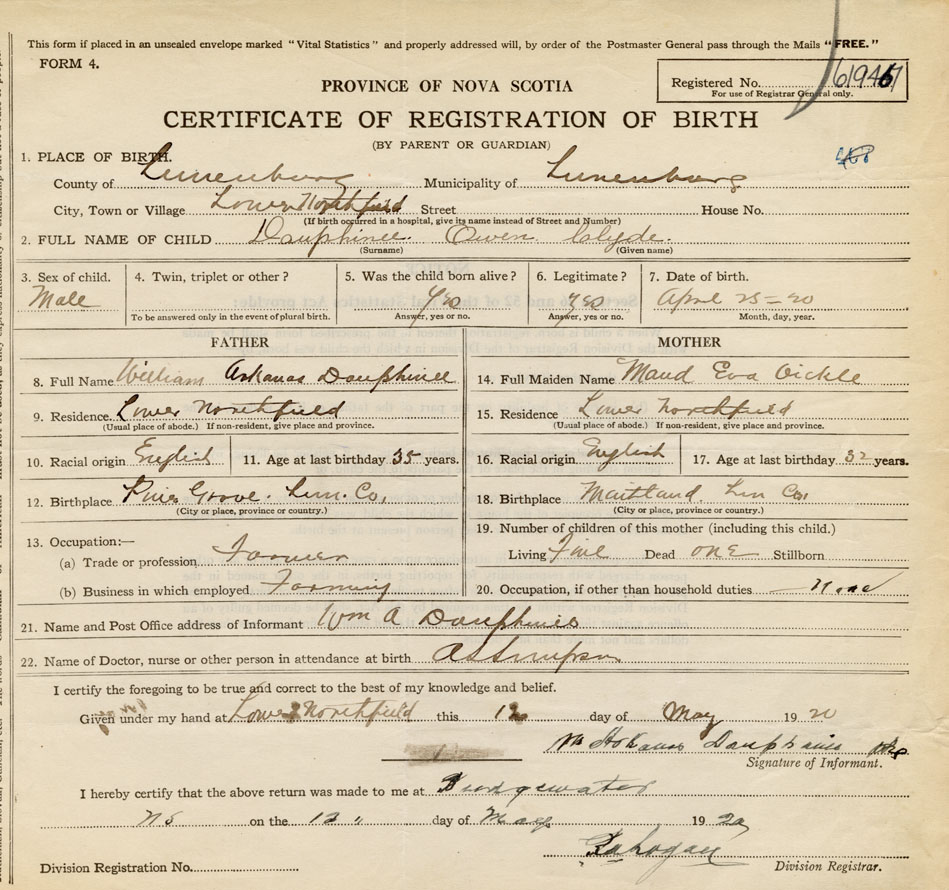 This form if placed in an unsealed envelope marked "Vital Statistics" and properly addressed will, by order of the Postmaster General pass through the Mails "FREE."
FORM 4.
Registered No.
For use of Registrar General only.
PROVINCE OF NOVA SCOTIA
CERTIFICATE OF REGISTRATION OF BIRTH
(BY PARENT OR GUARDIAN)
1. PLACE OF BIRTH.
County of Lunenburg Municipality of Lunenburg
City, Town or Village Lower Northfield Street House No.
(If birth occurred in a hospital, give its name instead of Street and Number)
2. FULL NAME OF CHILD Dauphinee Owen Clyde.
(Surname) (Given name)
3. Sex of child. 4. Twin, triplet or other? 5. Was the child born alive? 6. Legitimate? 7. Date of birth.
Male Yes Yes April 25=20
To be answered only in the event of plural birth. Answer, yes or no. Answer, yes or no. Month, day, year.
FATHER
8. Full Name William Arkanas Dauphinee
9. Residence. Lower Northfield
(Usual place of abode.) If non-resident, give place and province.
10. Racial origin English 11. Age at last birthday 35 years.
12. Birthplace Pine Grove. Lun. Co,
(City or place, province or country.)
13. Occupation:—
(a) Trade or profession Farmer
(b) Business in which employed Farming
MOTHER
14. Full Maiden Name Maud Eva Oickle
15. Residence Lower Northfield
(Usual place of abode.) If non-resident, give place and province.
16. Racial origin English 17. Age at last birthday 32 years.
18. Birthplace Maitland Lun Co,
(City or place, province or country.)
19. Number of children of this mother (including this child.)
Living Five Dead one Stillborn
20. Occupation, if other than household duties None
21. Name and Post Office address of Informant Wm A Dauphinee
22. Name of Doctor, nurse or other person in attendance at birth A S Simpson
I certify the foregoing to be true and correct to the best of my knowledge and belief.
Given under my hand at Lower Northfield this 12 day of May 1920
Dauphinee
Signature of Informant.
I hereby certify that the above return was made to me at Bridgewater
NS on the 12 " day of May 1920
Division Registration No. Division Registrar.